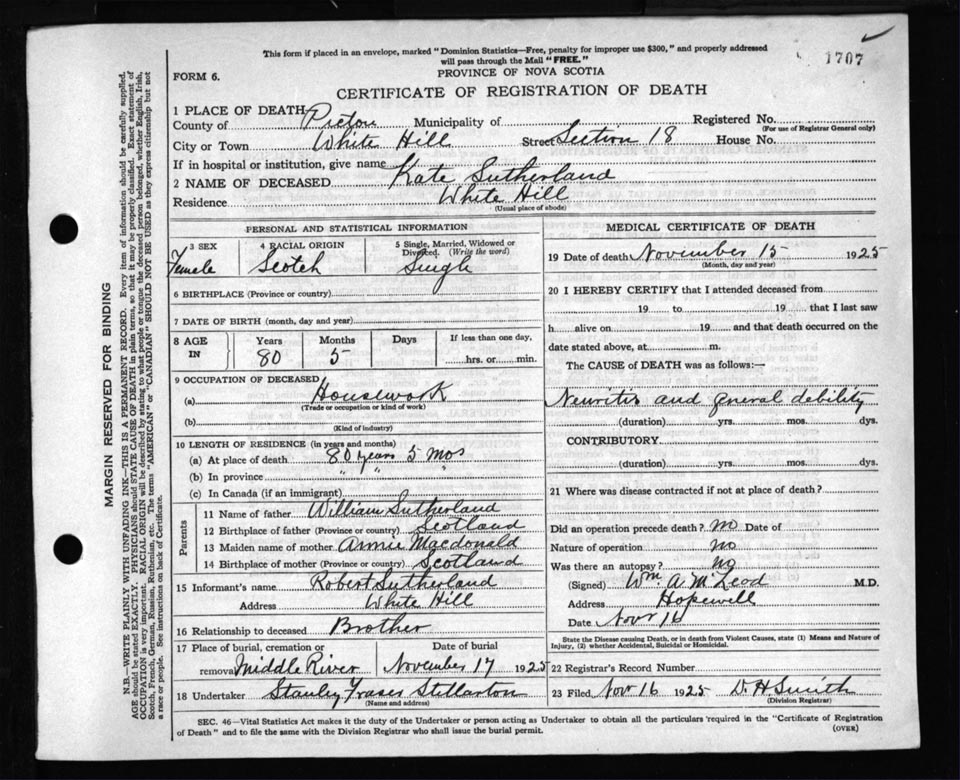 This form if placed in an envelope, marked "Dominion Statistics—Free, penalty for improper use $300," and properly addressed
will pass through the Mail "FREE."
1707
FORM 6.
PROVINCE OF NOVA SCOTIA
CERTIFICATE OF REGISTRATION OF DEATH
1 PLACE OF DEATH
County of Pictou Municipality of Registered No.
(For use of Registrar General only)
City or Town White Hill Street Section 18 House No.
If in hospital or institution, give name
2 NAME OF DECEASED Kate Sutherland
Residence White Hill
(Usual place of abode)
PERSONAL AND STATISTICAL INFORMATION
3 SEX 4 RACIAL ORIGIN 5 Single, Married, Widowed or
Divorced. (Write the word)
Female Scotch Single
6 BIRTHPLACE (Province or country)
7 DATE OF BIRTH (month, day and year)
8 AGE IN Years Months Days If less than one day,
80 5 hrs. or min.
9 OCCUPATION OF DECEASED
(a) Housework
(Trade or occupation or kind of work)
(b)
(Kind of industry)
10 LENGTH OF RESIDENCE (in years and months)
(a) At place of death 80 years 5 mos
(b) In province " " "
(c) In Canada (if an immigrant)
Parents
11 Name of father William Sutherland
12 Birthplace of father (Province or country) Scotland
13 Maiden name of mother Annie Macdonald
14 Birthplace of mother (Province or country) Scotland
15 Informant's name Robert Sutherland
Address White Hill
16 Relationship to deceased Brother
17 Place of burial, cremation or Date of burial
removal Middle River November 17 1925
18 Undertaker Stanley Fraser Stellarton
(Name and address)
MEDICAL CERTIFICATE OF DEATH
19 Date of death November 15 1925
(Month, day and year)
20 I HEREBY CERTIFY that I attended deceased from
19 to 19 that I last saw
h alive on 19 and that death occurred on the
date stated above, at m.
The CAUSE of DEATH was as follows:—
Neuritis and general debility
(duration) yrs. mos. dys.
CONTRIBUTORY
(duration) yrs. mos. dys.
21 Where was disease contracted if not at place of death?
Did an operation precede death? no Date of
Nature of operation no
Was there an autopsy? no
(Signed) Wm. A. McLeod M.D.
Address Hopewell
Date Nov 16
State the Disease causing Death, or in death from Violent Causes, state (1) Means and Nature of
Injury, (2) whether Accidental, Suicidal or Homicidal.
22 Registrar's Record Number
23 Filed Nov 16 1925 D. H. Smith
(Division Registrar)
SEC. 46—Vital Statistics Act makes it the duty of the Undertaker or person acting as Undertaker to obtain all the particulars required in the "Certificate of Registration
of Death" and to file the same with the Division Registrar who shall issue the burial permit.
(OVER)
MARGIN RESERVED FOR BINDING
N.B.—WRITE PLAINLY WITH UNFADING INK—THIS IS A PERMANENT RECORD. Every item of information should be carefully supplied.
AGE should be stated EXACTLY. PHYSICIANS should STATE CAUSE OF DEATH in plain terms, so that it may be properly classified. Exact statement of
OCCUPATION is very important. RACIAL ORIGIN will be described by stating to what people or tongue the deceased person belonged, whether English, Irish,
Scotch, French, German, Russian, Ruthenian, etc. The terms "AMERICAN" or "CANADIAN" SHOULD NOT BE USED as they express citizenship but not
a race or people. See instructions on back of Certificate.